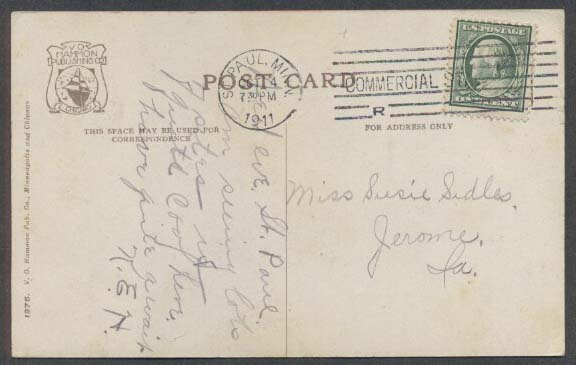 V.O.
HAMMON
PUBLISHING CO.
CHICAGO
POST CARD
THIS SPACE MAY BE USED FOR
CORRESPONDENCE
FOR ADDRESS ONLY
ST. PAUL, MINN.
4
7 30 PM
1911
COMMERCIAL
R
U.S. POSTAGE
CENT
1376. V. O. Hammon Pub. Co., Minneapolis and Chicago
eve. St. Paul
Am seeing lots
quite cool here.
have quite a wait
N.E.H.
Miss Susie Sidles.
Jerome.
Ia.